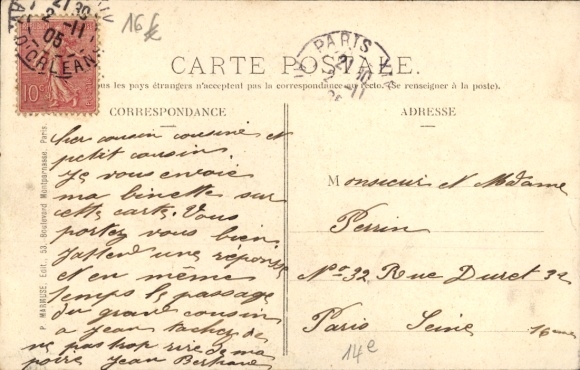 16 f
21 30
2-11
05
D'ORLEANS
10c
PARIS
21 10
2-11
05
CARTE POSTALE.
Tous les pays étrangers n'acceptent pas la correspondance au recto. (Se renseigner à la poste).
CORRESPONDANCE
Cher cousin cousine et
petit cousin.
Je vous envoie
ma binette sur
cette carte. Vous
portez vous bien.
J'attend une réponse
et en même
temps le passage
du grand cousin
a Jean tachez de
ne pas trop rire de ma
poire Jean Bertrand
P. MARMUSE, Edit., 53, Boulevard Montparnasse, Paris.
ADRESSE
Monsieur et Madame
Perrin
No 32 Rue Duret 32
Paris Seine 16eme
14e